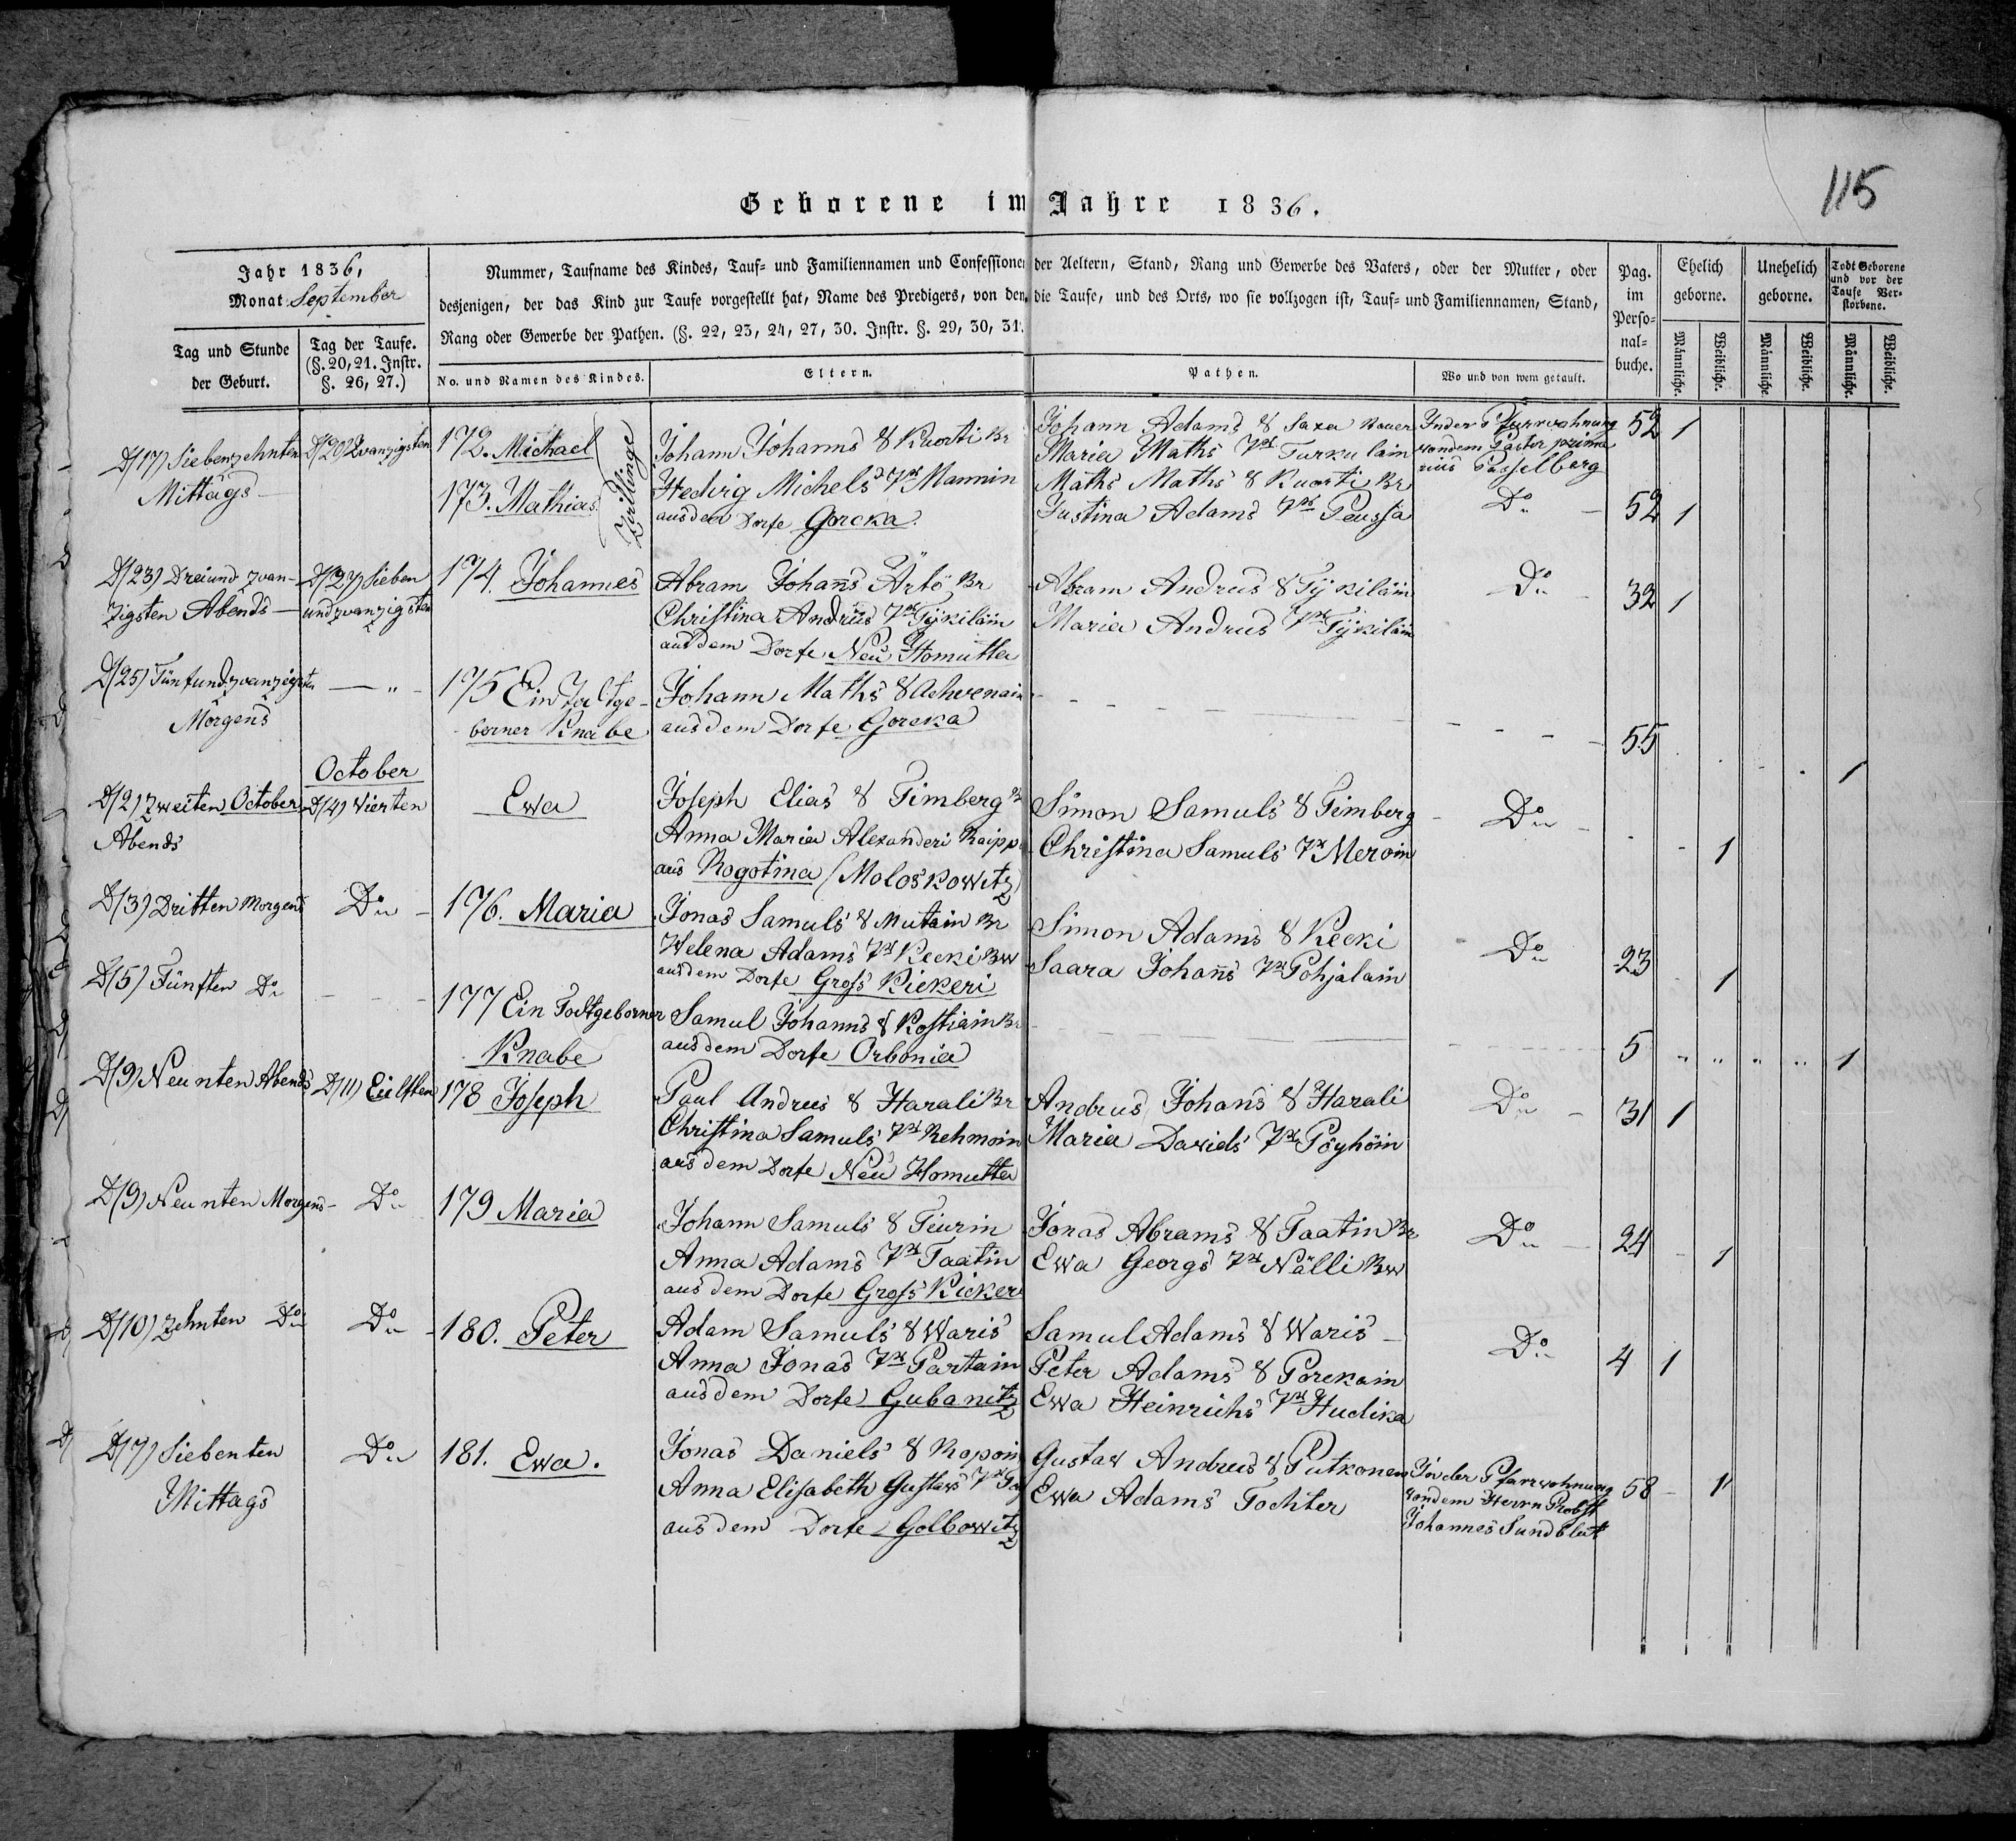 115
Geborene im Jahre 1836.
Jahr 1836,
Monat September
Tag und Stunde der Geburt.
Tag der Taufe. (§. 20, 21. Instr. §. 26, 27.)
Nummer, Taufname des Kindes, Tauf- und Familiennamen und Confessionen der Aeltern, Stand, Rang und Gewerbe des Vaters, oder der Mutter, oder
desjenigen, der das Kind zur Taufe vorgestellt hat, Name des Predigers, von dem die Taufe, und des Orts, wo sie vollzogen ist, Tauf- und Familiennamen, Stand,
Rang oder Gewerbe der Pathen. (§. 22, 23, 24, 27, 30. Instr. §. 29, 30, 31.
No. und Namen des Kindes.
Eltern.
Pathen.
Wo und von wem getauft.
Pag. im Perso-nal-buche.
Ehelich geborne.
Unehelich geborne.
Todt Geborene und vor der Taufe Ver-storbene.
Männliche.
Weibliche.
Männliche.
Weibliche.
Männliche.
Weibliche.
D/17) Siebenzehnten
Mittags
D/20) Zwanzigsten
172. Michael
173. Mathias.
Zwillinge
Johann Johanns S Kuorti Br
Hedwig Michels Tr Mannin
aus dem Dorfe Goreka.
Johann Adams S Saxa Bauer
Maria Maths Tr Turkulain
Maths Maths S Kuorti Br
Justina Adams Tr Peussa
In der Pfarrwohnung
von dem Pastor prima
rius Passelberg
Do
52 1
52 1
D/23) Dreiund zwan-
zigsten Abends
D/27) Sieben
undzwanzigsten
174. Johannes
Abram Johañs Ärtö Br
Christina Andrus Tr Tÿkiläin
aus dem Dorfe Neu Homutta
Abram Andrus S Tÿkiläin
Maria Andrus Tr Tÿkiläin
Do
32 1
D/25) Fünfundzwanzigsten
Morgens
175 Ein Todtge-
borner Knabe
Johann Maths S Achvenain
aus dem Dorfe Goreka
55
1
October
D/2) Zweiten October
Abends
D/4) Vierten
Ewa
Joseph Elias S Timberg
Anna Maria Alexanderi Raipp
aus Rogotina (Moloskowitz)
Simon Samuls S Timberg
Christina Samuls Tr Meroin
Do
1
D/3) Dritten Morgens
Do
176. Maria
Jonas Samuls S Mutain Br
Helena Adams Tr Kecki Bw
aus dem Dorfe Gross Kickeri
Simon Adams S Kecki
Saara Johañs Tr Pohjalain
Do
23
1
D/5) Fünften Do
177 Ein Todtgeborner
Knabe
Samul Johanns S Kostiain Br
aus dem Dorfe Orbonia
5
1
D/9) Neunten Abends
D/11) Eilften
178 Joseph
Paul Andrus S Harali Br
Christina Samuls Tr Rehmoin
aus dem Dorfe Neu Homutta
Andrus Johans S Harali
Maria Davids Tr Pöyhöin
Do
31 1
D/9) Neunten Morgens
Do
179 Maria
Johann Samuls S Teurin
Anna Adams Tr Taatin
aus dem Dorfe Gross Kicker
Jonas Abrams S Taatin Br
Ewa Georgs Tr Nälli Bw
Do
24
1
D/10) Zehnten Do
Do
180. Peter
Adam Samuls S Waris
Anna Jonas Tr Partain
aus dem Dorfe Gubanitz
Samul Adams S Waris
Peter Adams S Porekain
Ewa Heinrichs Tr Hudika
Do
4 1
D/7) Siebenten
Mittags
Do
181. Ewa.
Jonas Daniels S Ropoin
Anna Elisabeth Gustavs Tr
aus dem Dorfe Golbowitz
Gustav Andreus S Putkonen
Ewa Adams Tochter
In der Pfarrwohnung
von dem Herrn Probst
Johannes Sundblat
58
1